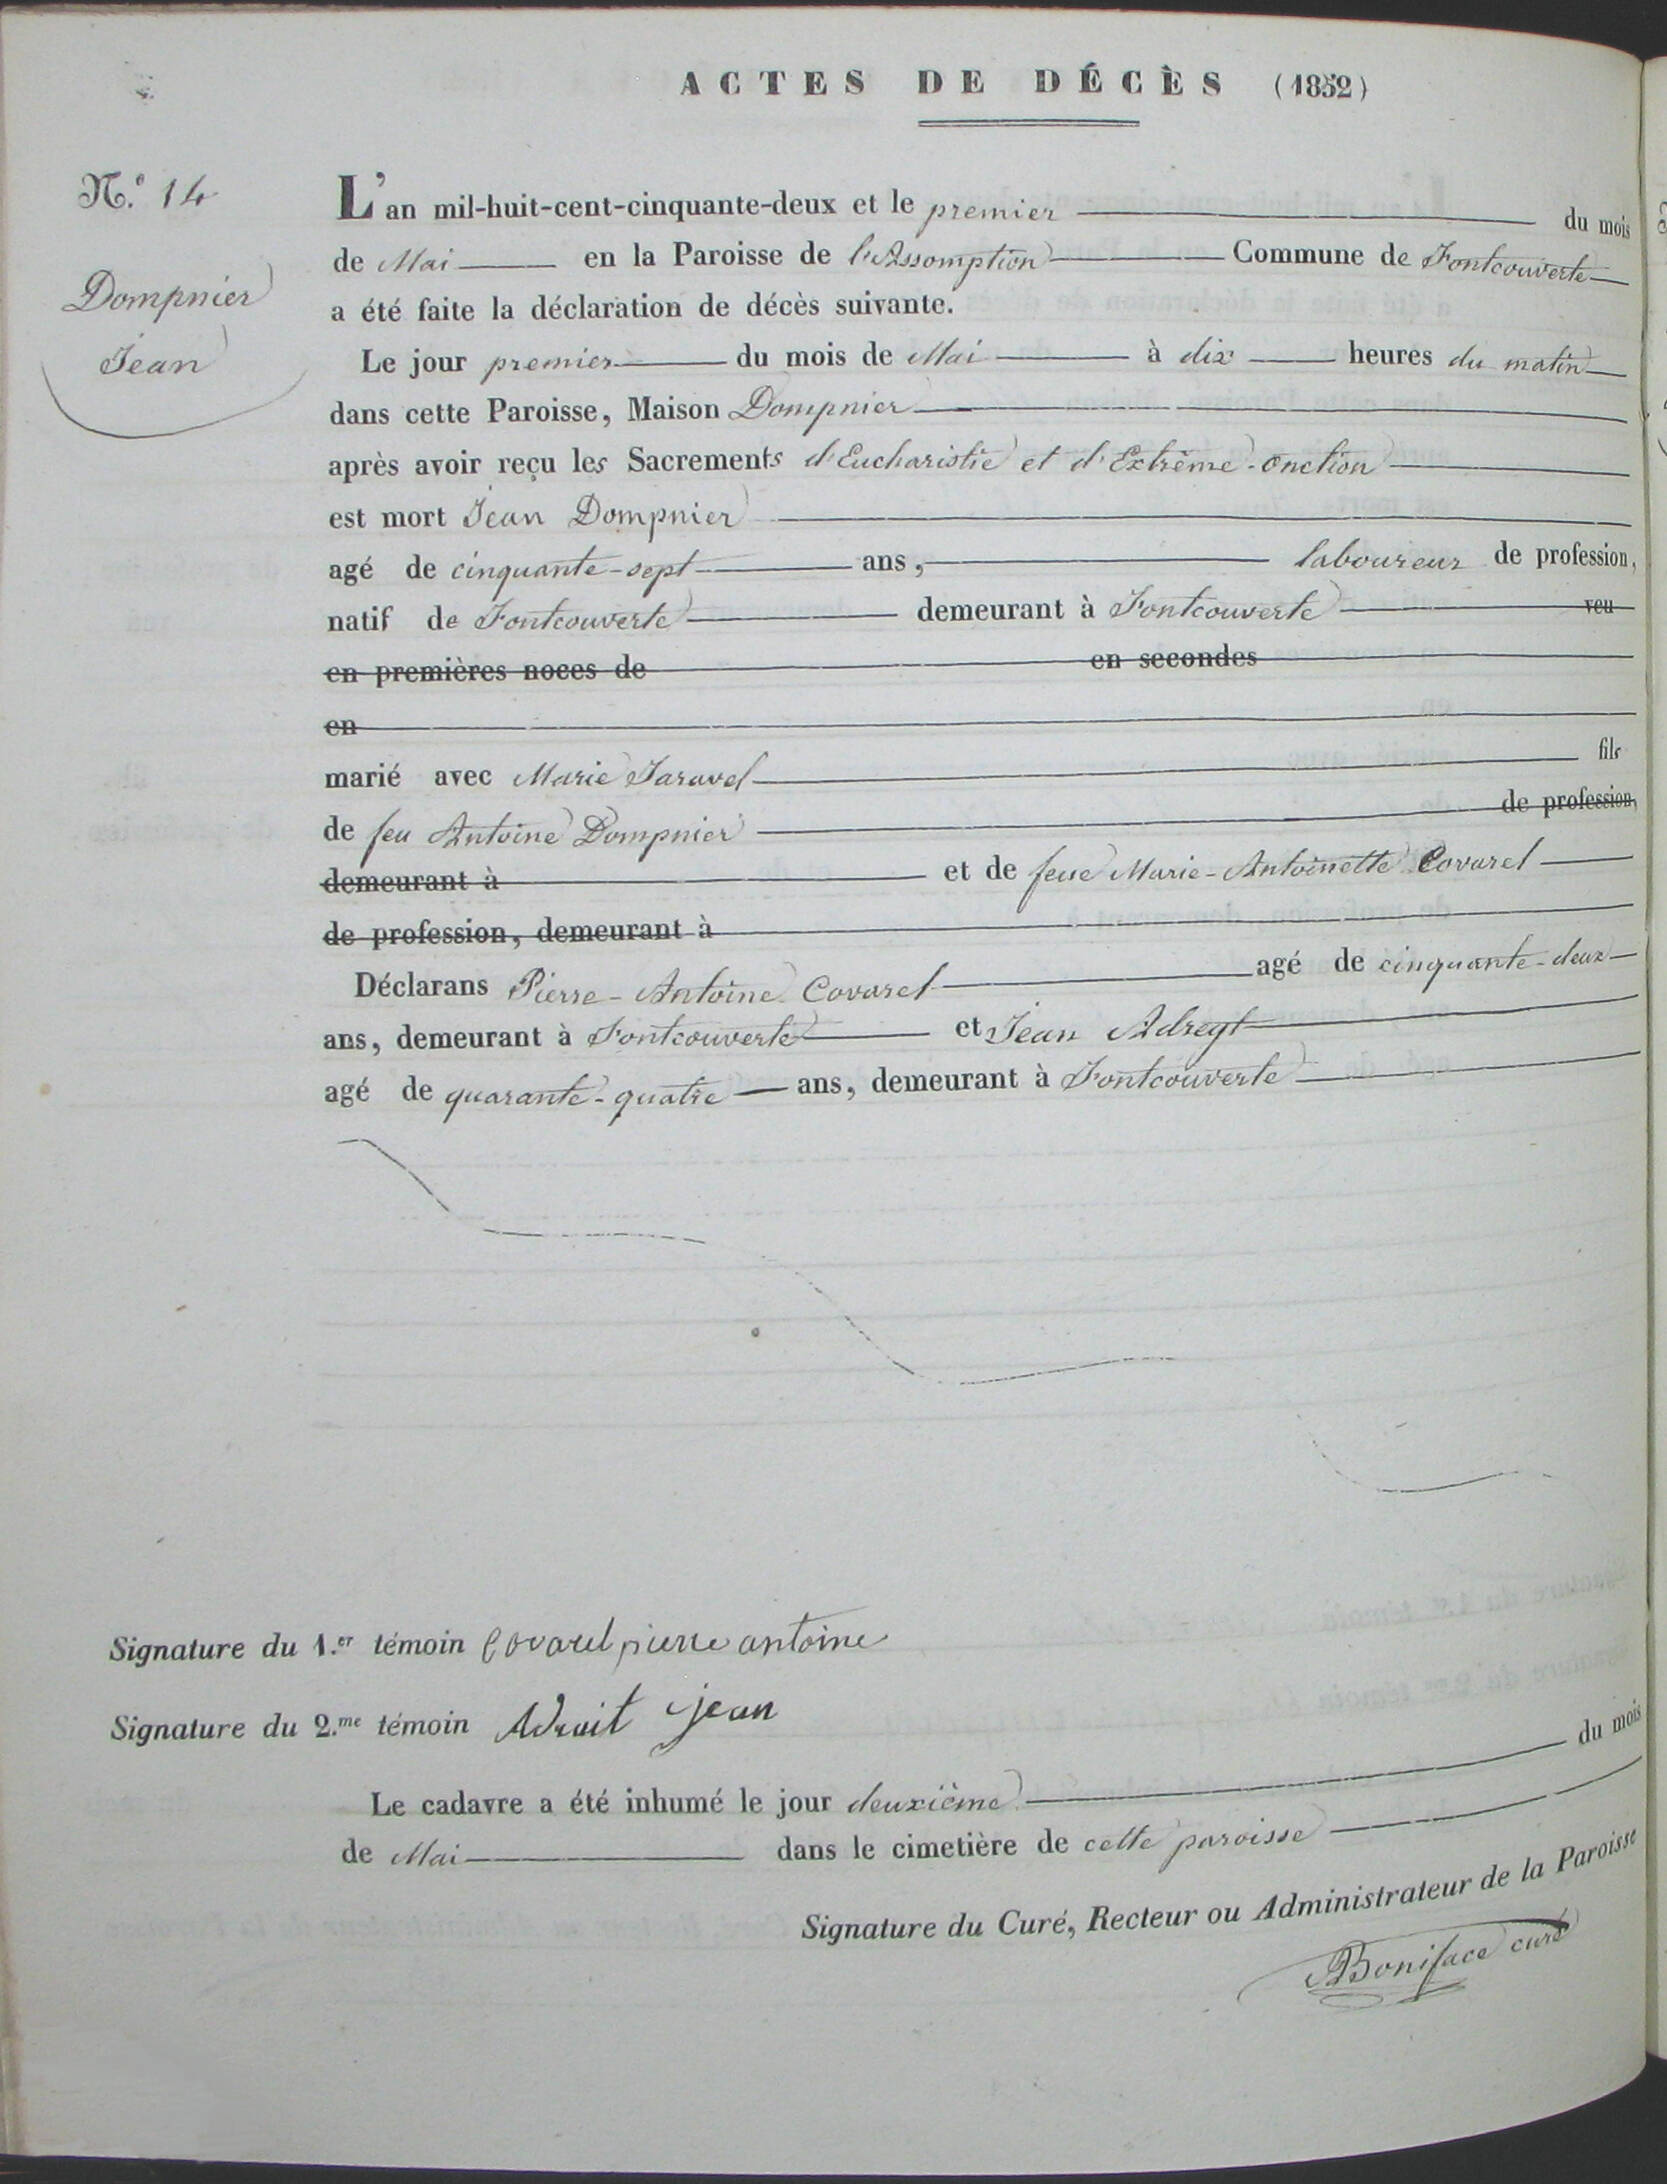 ACTES DE DÉCÈS (1852)
N.º 14
Dompnier
Jean
L'an mil-huit-cent-cinquante-deux et le premier du mois
de Mai en la Paroisse de l'Assomption Commune de Fontcouverte
a été faite la déclaration de décès suivante.
Le jour premier du mois de Mai à dix heures du matin
dans cette Paroisse, Maison Dompnier
après avoir reçu les Sacrements d'Eucharistie et d'Extrême-onction
est mort Jean Dompnier
agé de cinquante-sept ans, laboureur de profession,
natif de Fontcouverte demeurant à Fontcouverte veu
en premières noces de en secondes
en
marié avec Marie Jaravel fils
de feu Antoine Dompnier de profession,
demeurant à et de feue Marie-Antoinette Covarel
de profession, demeurant à
Déclarans Pierre-Antoine Covarel agé de cinquante-deux
ans, demeurant à Fontcouverte et Jean Adregt
agé de quarante-quatre ans, demeurant à Fontcouverte
Signature du 1.er témoin Covarel pierre antoine
Signature du 2.me témoin Adrait jean
Le cadavre a été inhumé le jour deuxième du mois
de Mai dans le cimetière de cette paroisse
Signature du Curé, Recteur ou Administrateur de la Paroisse
Boniface curé